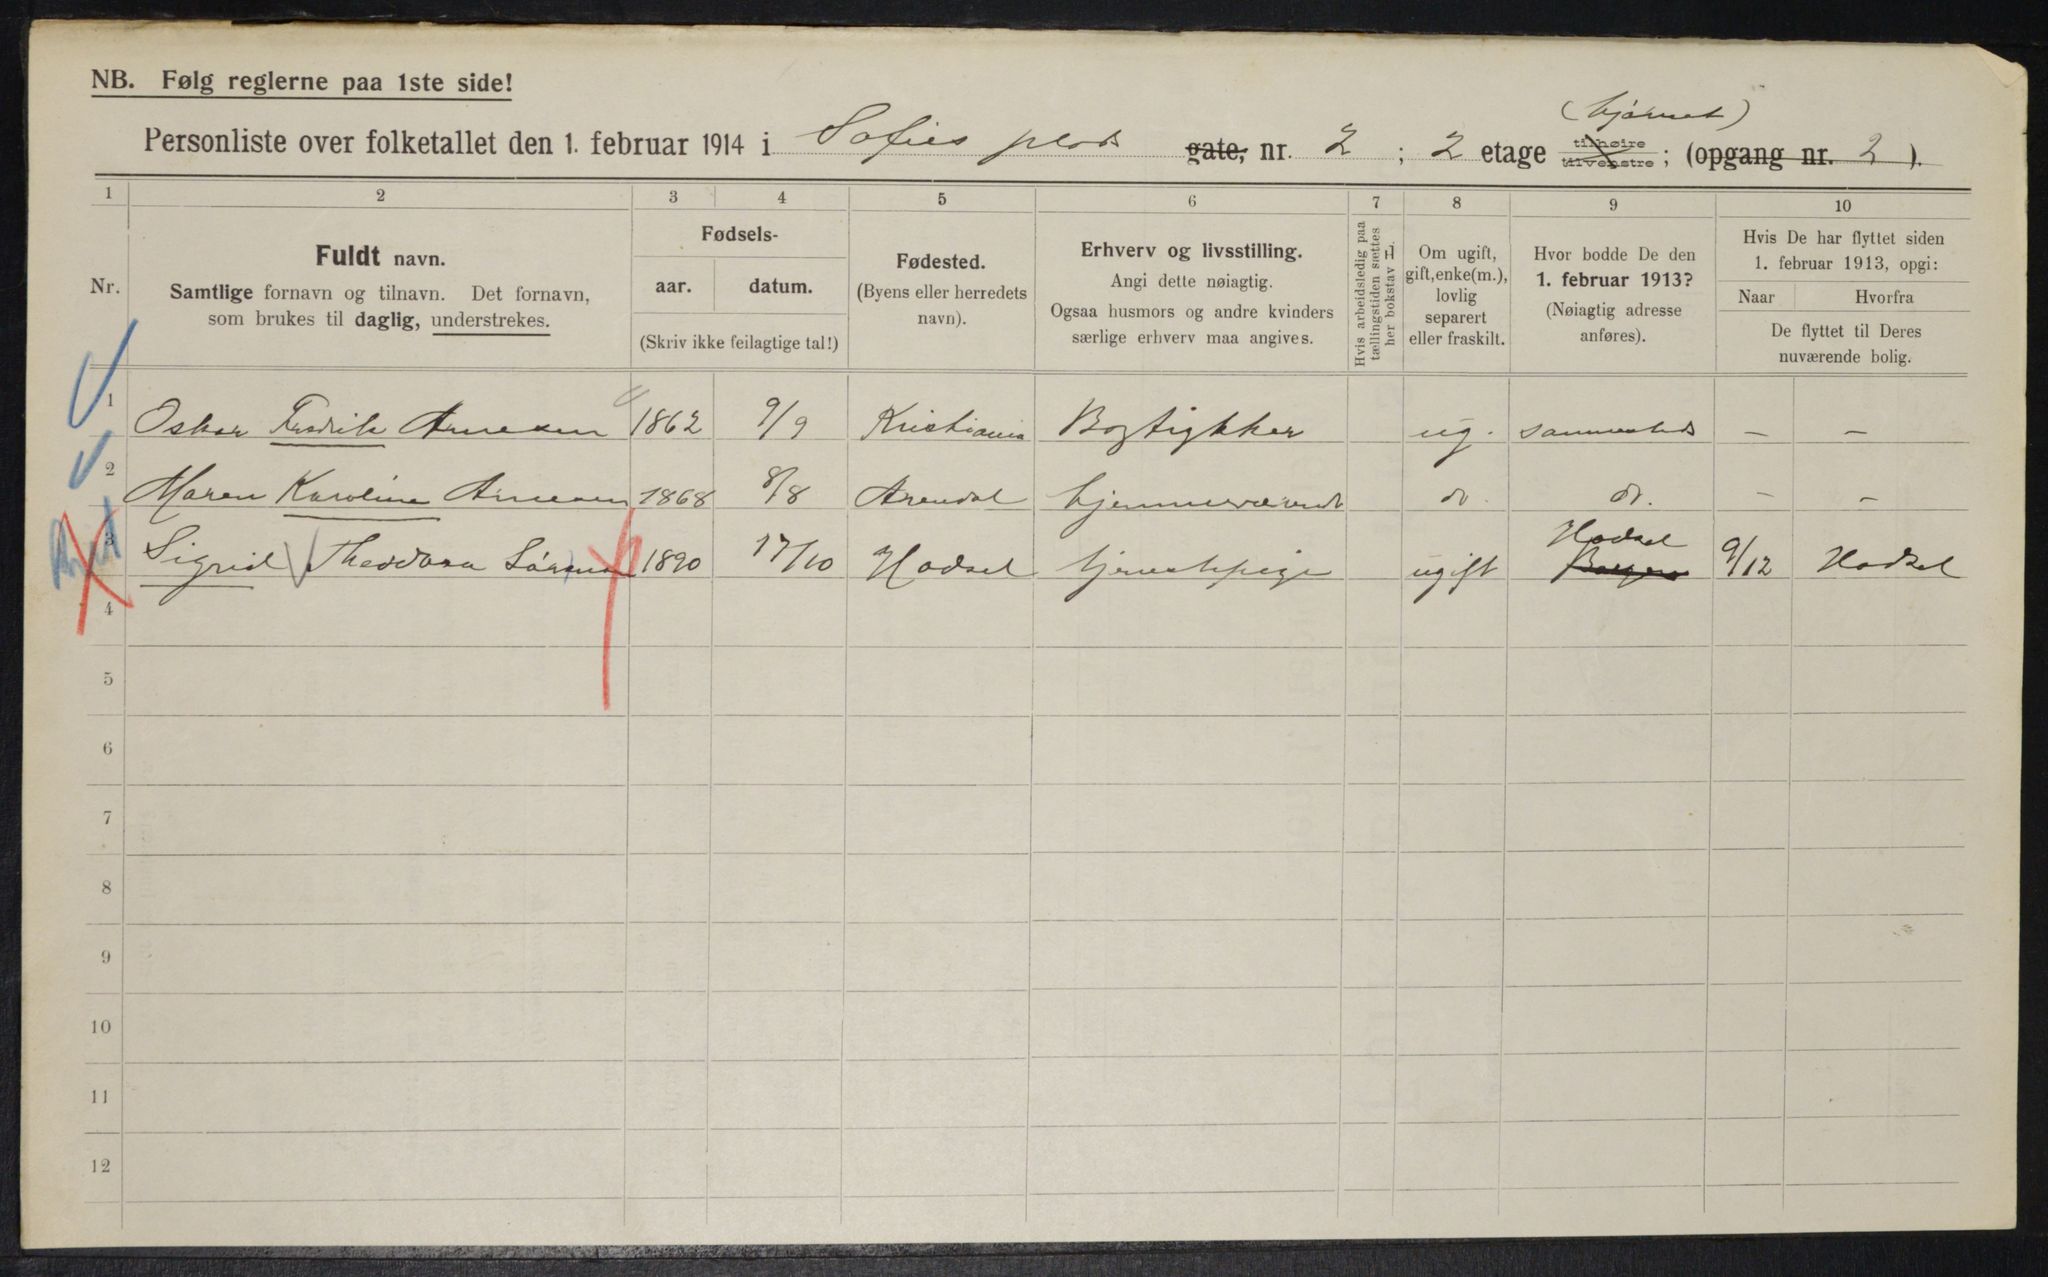 NB. Følg reglerne paa 1ste side!
(hjørnet)
Personliste over folketallet den 1. februar 1914 i Sofies plads gate, nr. 2 ; 2 etage tilhøire tilvenstre ; (opgang nr. 2 ).
1 2 3 4 5 6 7 8 9 10
Nr.
Fuldt navn.
Samtlige fornavn og tilnavn. Det fornavn,
som brukes til daglig, understrekes.
Fødsels-
aar. datum.
(Skriv ikke feilagtige tal!)
Fødested.
(Byens eller herredets
navn).
Erhverv og livsstilling.
Angi dette nøiagtig.
Ogsaa husmors og andre kvinders
særlige erhverv maa angives.
Hvis arbeidsledig paa
tællingstiden sættes
her bokstav L.
Om ugift,
gift, enke(m.),
lovlig
separert
eller fraskilt.
Hvor bodde De den
1. februar 1913?
(Nøiagtig adresse
anføres).
Hvis De har flyttet siden
1. februar 1913, opgi:
Naar Hvorfra
De flyttet til Deres
nuværende bolig.
1 Oskar Fredrik Arnesen 1862 9/9 Kristiania Bogtrykker ug. sammesteds – –
2 Maren Karoline Arnesen 1868 8/8 Arendal hjemmeværende do. do. – –
3 Sigrid Theodora 1890 17/10 Hadsel tjenestepige ugift Hadsel 9/12 Hadsel
4
5
6
7
8
9
10
11
12